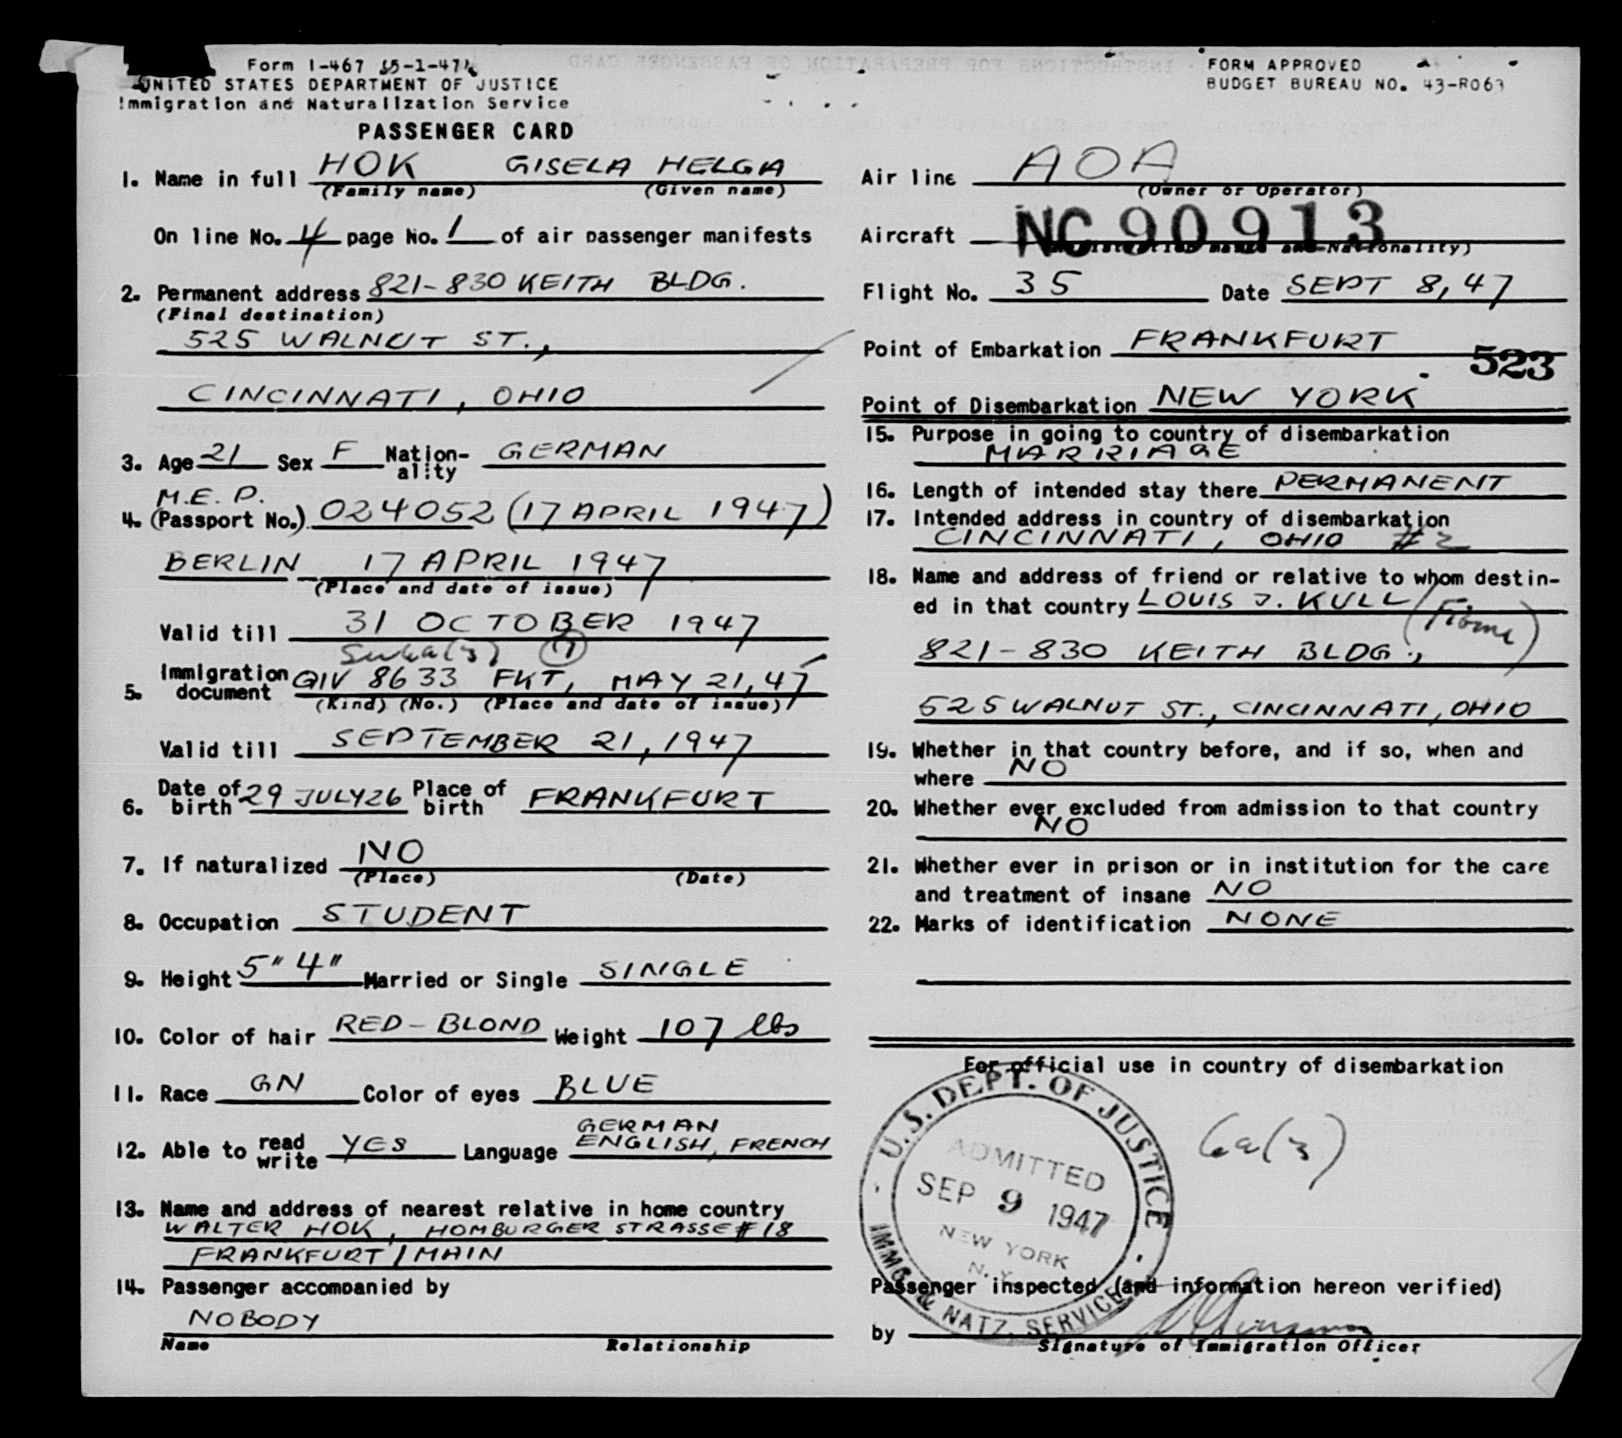 Form I-467 (5-1-47)
UNITED STATES DEPARTMENT OF JUSTICE
Immigration and Naturalization Service
PASSENGER CARD
FORM APPROVED
BUDGET BUREAU NO. 43-R063
1. Name in full HOK GISELA HELGA
(Family name) (Given name)
On line No. 4 page No. 1 of air passenger manifests
2. Permanent address 821-830 KEITH BLDG.
(Final destination)
525 WALNUT ST.,
CINCINNATI, OHIO
3. Age 21 Sex F Nation-ality GERMAN
M.E.P.
4. (Passport No.) 024052 (17 APRIL 1947)
BERLIN 17 APRIL 1947
(Place and date of issue)
Valid till 31 OCTOBER 1947
5. Immigration document QIV 8633 FKT, MAY 21, 47
(Kind) (No.) (Place and date of issue)
Valid till SEPTEMBER 21, 1947
6. Date of birth 29 JULY 26 Place of birth FRANKFURT
7. If naturalized NO
(Place) (Date)
8. Occupation STUDENT
9. Height 5" 4" Married or Single SINGLE
10. Color of hair RED-BLOND Weight 107 lbs
11. Race GN Color of eyes BLUE
12. Able to read write YES Language GERMAN
ENGLISH, FRENCH
13. Name and address of nearest relative in home country
WALTER HOK, HOMBURGER STRASSE # 18
FRANKFURT / MAIN
14. Passenger accompanied by
NOBODY
Name Relationship
Air line AOA
(Owner or Operator)
Aircraft NC 90913
(Registration marks and Nationality)
Flight No. 35 Date SEPT 8, 47
Point of Embarkation FRANKFURT
523
Point of Disembarkation NEW YORK
15. Purpose in going to country of disembarkation
MARRIAGE
16. Length of intended stay there PERMANENT
17. Intended address in country of disembarkation
CINCINNATI, OHIO #2
18. Name and address of friend or relative to whom destin-
ed in that country LOUIS J. KULL
821-830 KEITH BLDG.,
525 WALNUT ST., CINCINNATI, OHIO
19. Whether in that country before, and if so, when and
where NO
20. Whether ever excluded from admission to that country
NO
21. Whether ever in prison or in institution for the care
and treatment of insane NO
22. Marks of identification NONE
For official use in country of disembarkation
U.S. DEPT. OF JUSTICE
ADMITTED
SEP 9 1947
NEW YORK
N.Y.
IMMG. & NATZ. SERVICE
6a(3)
Passenger inspected (and information hereon verified)
by
Signature of Immigration Officer